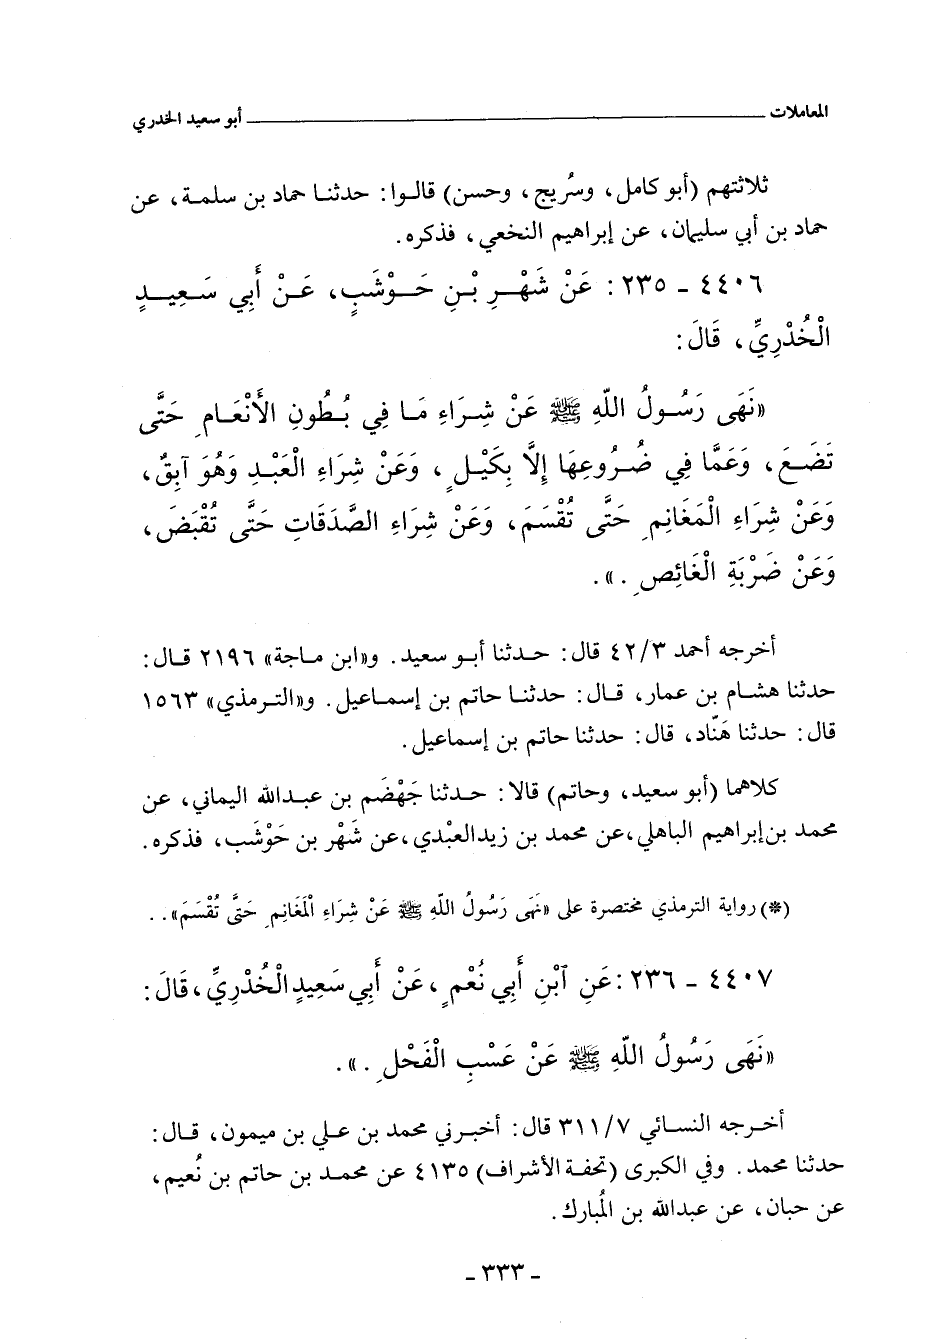 المعاملات ـــــــــــــــــــــــــــــــــــــــــــــــــــــــــ أبو سعيد الخدري
ثلاثتهم (أبو كامل، وسُريج، وحسن) قالوا: حدثنا حماد بن سلمة، عن
حماد بن أبي سليمان، عن إبراهيم النخعي، فذكره.
٤٤٠٦ - ٢٣٥: عَنْ شَهْرِ بْنِ حَوْشَبٍ، عَنْ أَبِي سَعِيدٍ
الْخُدْرِيِّ، قَالَ:
«نَهَى رَسُولُ اللّهِ ﷺ عَنْ شِرَاءِ مَا فِي بُطُونِ الأَنْعَامِ حَتَّى
تَضَعَ، وَعَمَّا فِي ضُرُوعِهَا إِلَّا بِكَيْلٍ، وَعَنْ شِرَاءِ الْعَبْدِ وَهُوَ آبِقٌ،
وَعَنْ شِرَاءِ الْمَغَانِمِ حَتَّى تُقْسَمَ، وَعَنْ شِرَاءِ الصَّدَقَاتِ حَتَّى تُقْبَضَ،
وَعَنْ ضَرْبَةِ الْغَائِصِ.».
أخرجه أحمد ٤٢/٣ قال: حدثنا أبو سعيد. و«ابن ماجة» ٢١٩٦ قال:
حدثنا هشام بن عمار، قال: حدثنا حاتم بن إسماعيل. و«الترمذي» ١٥٦٣
قال: حدثنا هَنّاد، قال: حدثنا حاتم بن إسماعيل.
كلاهما (أبو سعيد، وحاتم) قالا: حدثنا جَهْضَم بن عبدالله اليماني، عن
محمد بن إبراهيم الباهلي، عن محمد بن زيد العبْدي، عن شَهْر بن حَوْشَب، فذكره.
(*) رواية الترمذي مختصرة على «نَهَى رَسُولُ اللّهِ ﷺ عَنْ شِرَاءِ الْمَغَانِمِ حَتَّى تُقْسَمَ»..
٤٤٠٧ - ٢٣٦: عَنِ ٱبْنِ أَبِي نُعْمٍ، عَنْ أَبِي سَعِيدٍ الْخُدْرِيِّ، قَالَ:
«نَهَى رَسُولُ اللّهِ ﷺ عَنْ عَسْبِ الْفَحْلِ.».
أخرجه النسائي ٣١١/٧ قال: أخبرني محمد بن علي بن ميمون، قال:
حدثنا محمد. وفي الكبرى (تحفة الأشراف) ٤١٣٥ عن محمد بن حاتم بن نُعيم،
عن حبان، عن عبدالله بن المُبارك.
- ٣٣٣ -